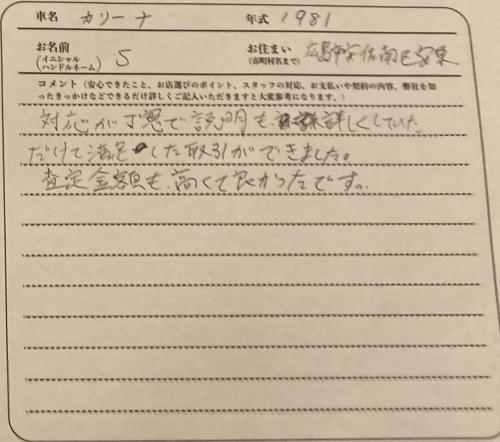 車名 カリーナ 年式 1981
お名前 (イニシャル ハンドルネーム) S お住まい (市町村名まで) 広島市安佐南区安東
コメント (安心できたこと、お店選びのポイント、スタッフの対応、お支払いや契約の内容、弊社を知
ったきっかけなどできるだけ詳しくご記入いただきますと大変参考になります。)
対応が丁寧で説明も 詳しくしていた
だけて満足した取引ができました。
査定金額も高くて良かったです。